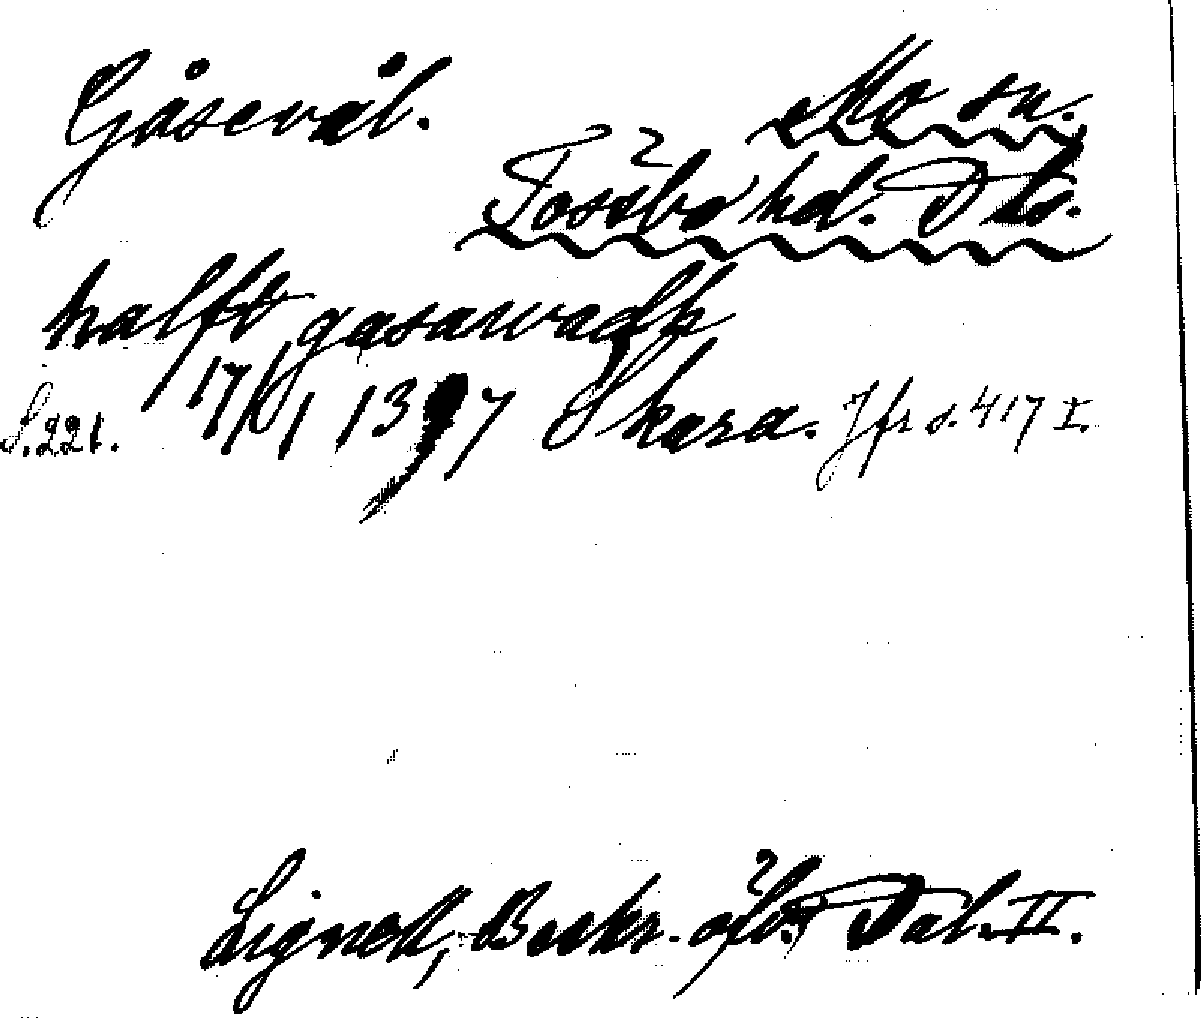 Gåsevål.
Mo sn.
Tössbo hd. Dls.
halft gasawadh
S. 221. 17/1 1397 Skara. Jfr s. 417 I.
Lignell, Beskr. öfv. Dal. II.